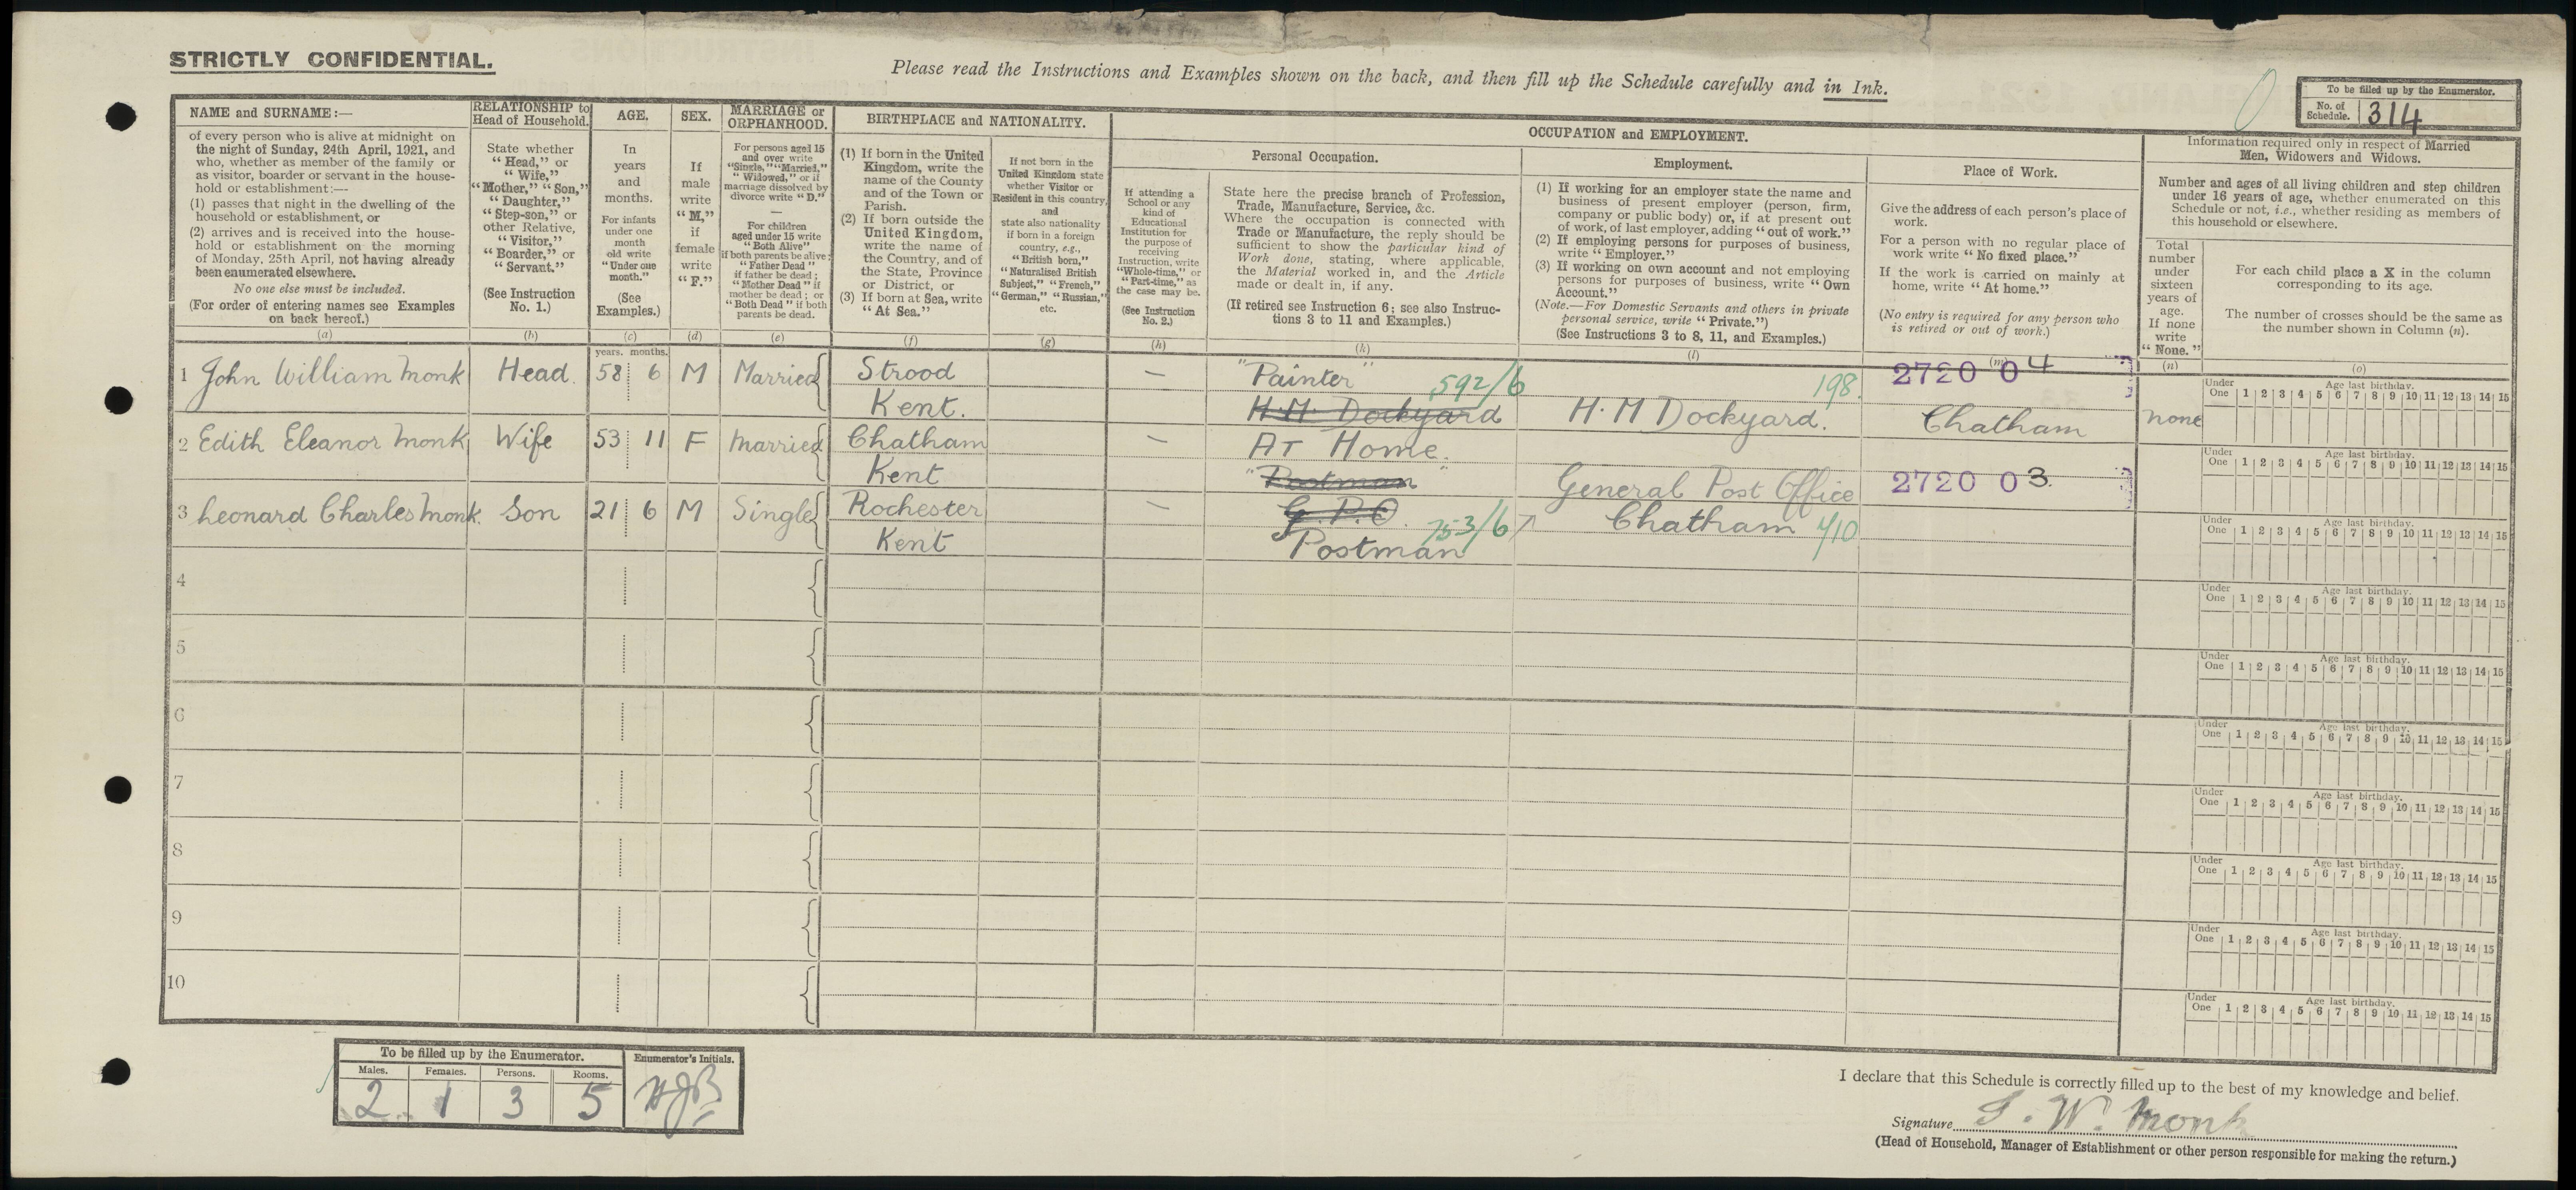 STRICTLY CONFIDENTIAL.
Please read the Instructions and Examples shown on the back, and then fill up the Schedule carefully and in Ink.
To be filled up by the Enumerator.
No. of Schedule. 314
NAME and SURNAME:—
of every person who is alive at midnight on
the night of Sunday, 24th April, 1921, and
who, whether as member of the family or
as visitor, boarder or servant in the house-
hold or establishment:—
(1) passes that night in the dwelling of the
household or establishment, or
(2) arrives and is received into the house-
hold or establishment on the morning
of Monday, 25th April, not having already
been enumerated elsewhere.
No one else must be included.
(For order of entering names see Examples
on back hereof.)
(a)
RELATIONSHIP to
Head of Household.
State whether
"Head," or
"Wife,"
"Mother," "Son,"
"Daughter,"
"Step-son," or
other Relative,
"Visitor,"
"Boarder," or
"Servant."
(See Instruction
No. 1.)
(b)
AGE.
In
years
and
months.
For infants
under one
month
old write
"Under one
month."
(See
Examples.)
(c)
SEX.
If
male
write
"M,"
if
female
write
"F."
(d)
MARRIAGE or
ORPHANHOOD.
For persons aged 15
and over write
"Single," "Married,"
"Widowed," or if
marriage dissolved by
divorce write "D."
—
For children
aged under 15 write
"Both Alive"
if both parents be alive;
"Father Dead"
if father be dead;
"Mother Dead" if
mother be dead; or
"Both Dead" if both
parents be dead.
(e)
BIRTHPLACE and NATIONALITY.
(1) If born in the United
Kingdom, write the
name of the County
and of the Town or
Parish.
(2) If born outside the
United Kingdom,
write the name of
the Country, and of
the State, Province
or District, or
(3) If born at Sea, write
"At Sea."
(f)
If not born in the
United Kingdom state
whether Visitor or
Resident in this country,
and
state also nationality
if born in a foreign
country, e.g.,
"British born,"
"Naturalised British
Subject," "French,"
"German," "Russian,"
etc.
(g)
OCCUPATION and EMPLOYMENT.
Personal Occupation.
If attending a
School or any
kind of
Educational
Institution for
the purpose of
receiving
Instruction, write
"Whole-time," or
"Part-time," as
the case may be.
(See Instruction
No. 2.)
(h)
State here the precise branch of Profession,
Trade, Manufacture, Service, &c.
Where the occupation is connected with
Trade or Manufacture, the reply should be
sufficient to show the particular kind of
Work done, stating, where applicable,
the Material worked in, and the Article
made or dealt in, if any.
(If retired see Instruction 6; see also Instruc-
tions 3 to 11 and Examples.)
(k)
Employment.
(1) If working for an employer state the name and
business of present employer (person, firm,
company or public body) or, if at present out
of work, of last employer, adding "out of work."
(2) If employing persons for purposes of business,
write "Employer."
(3) If working on own account and not employing
persons for purposes of business, write "Own
Account."
(Note.—For Domestic Servants and others in private
personal service, write "Private.")
(See Instructions 3 to 8, 11, and Examples.)
(l)
Place of Work.
Give the address of each person's place of
work.
For a person with no regular place of
work write "No fixed place."
If the work is carried on mainly at
home, write "At home."
(No entry is required for any person who
is retired or out of work.)
(m)
Information required only in respect of Married
Men, Widowers and Widows.
Number and ages of all living children and step children
under 16 years of age, whether enumerated on this
Schedule or not, i.e., whether residing as members of
this household or elsewhere.
Total
number
under
sixteen
years of
age.
If none
write
"None."
(n)
For each child place a X in the column
corresponding to its age.
The number of crosses should be the same as
the number shown in Column (n).
(o)
years. months.
1 John William Monk Head. 58 6 M Married Strood Kent. — "Painter" 592/6 H.M. Dockyard H.M Dockyard. 198. 2720 04 Chatham none
Under One 1 2 3 4 5 6 7 8 9 10 11 12 13 14 15
Age last birthday.
2 Edith Eleanor Monk Wife 53 11 F Married Chatham Kent — At Home.
Under One 1 2 3 4 5 6 7 8 9 10 11 12 13 14 15
Age last birthday.
3 Leonard Charles Monk. Son 21 6 M Single Rochester Kent — "Postman" G.P.O. 753/6 Postman General Post Office Chatham 4/10 2720 03
Under One 1 2 3 4 5 6 7 8 9 10 11 12 13 14 15
Age last birthday.
4
Under One 1 2 3 4 5 6 7 8 9 10 11 12 13 14 15
Age last birthday.
5
Under One 1 2 3 4 5 6 7 8 9 10 11 12 13 14 15
Age last birthday.
6
Under One 1 2 3 4 5 6 7 8 9 10 11 12 13 14 15
Age last birthday.
7
Under One 1 2 3 4 5 6 7 8 9 10 11 12 13 14 15
Age last birthday.
8
Under One 1 2 3 4 5 6 7 8 9 10 11 12 13 14 15
Age last birthday.
9
Under One 1 2 3 4 5 6 7 8 9 10 11 12 13 14 15
Age last birthday.
10
Under One 1 2 3 4 5 6 7 8 9 10 11 12 13 14 15
Age last birthday.
To be filled up by the Enumerator.
Males. Females. Persons. Rooms.
2 1 3 5
Enumerator's Initials.
I declare that this Schedule is correctly filled up to the best of my knowledge and belief.
Signature J. W. Monk
(Head of Household, Manager of Establishment or other person responsible for making the return.)